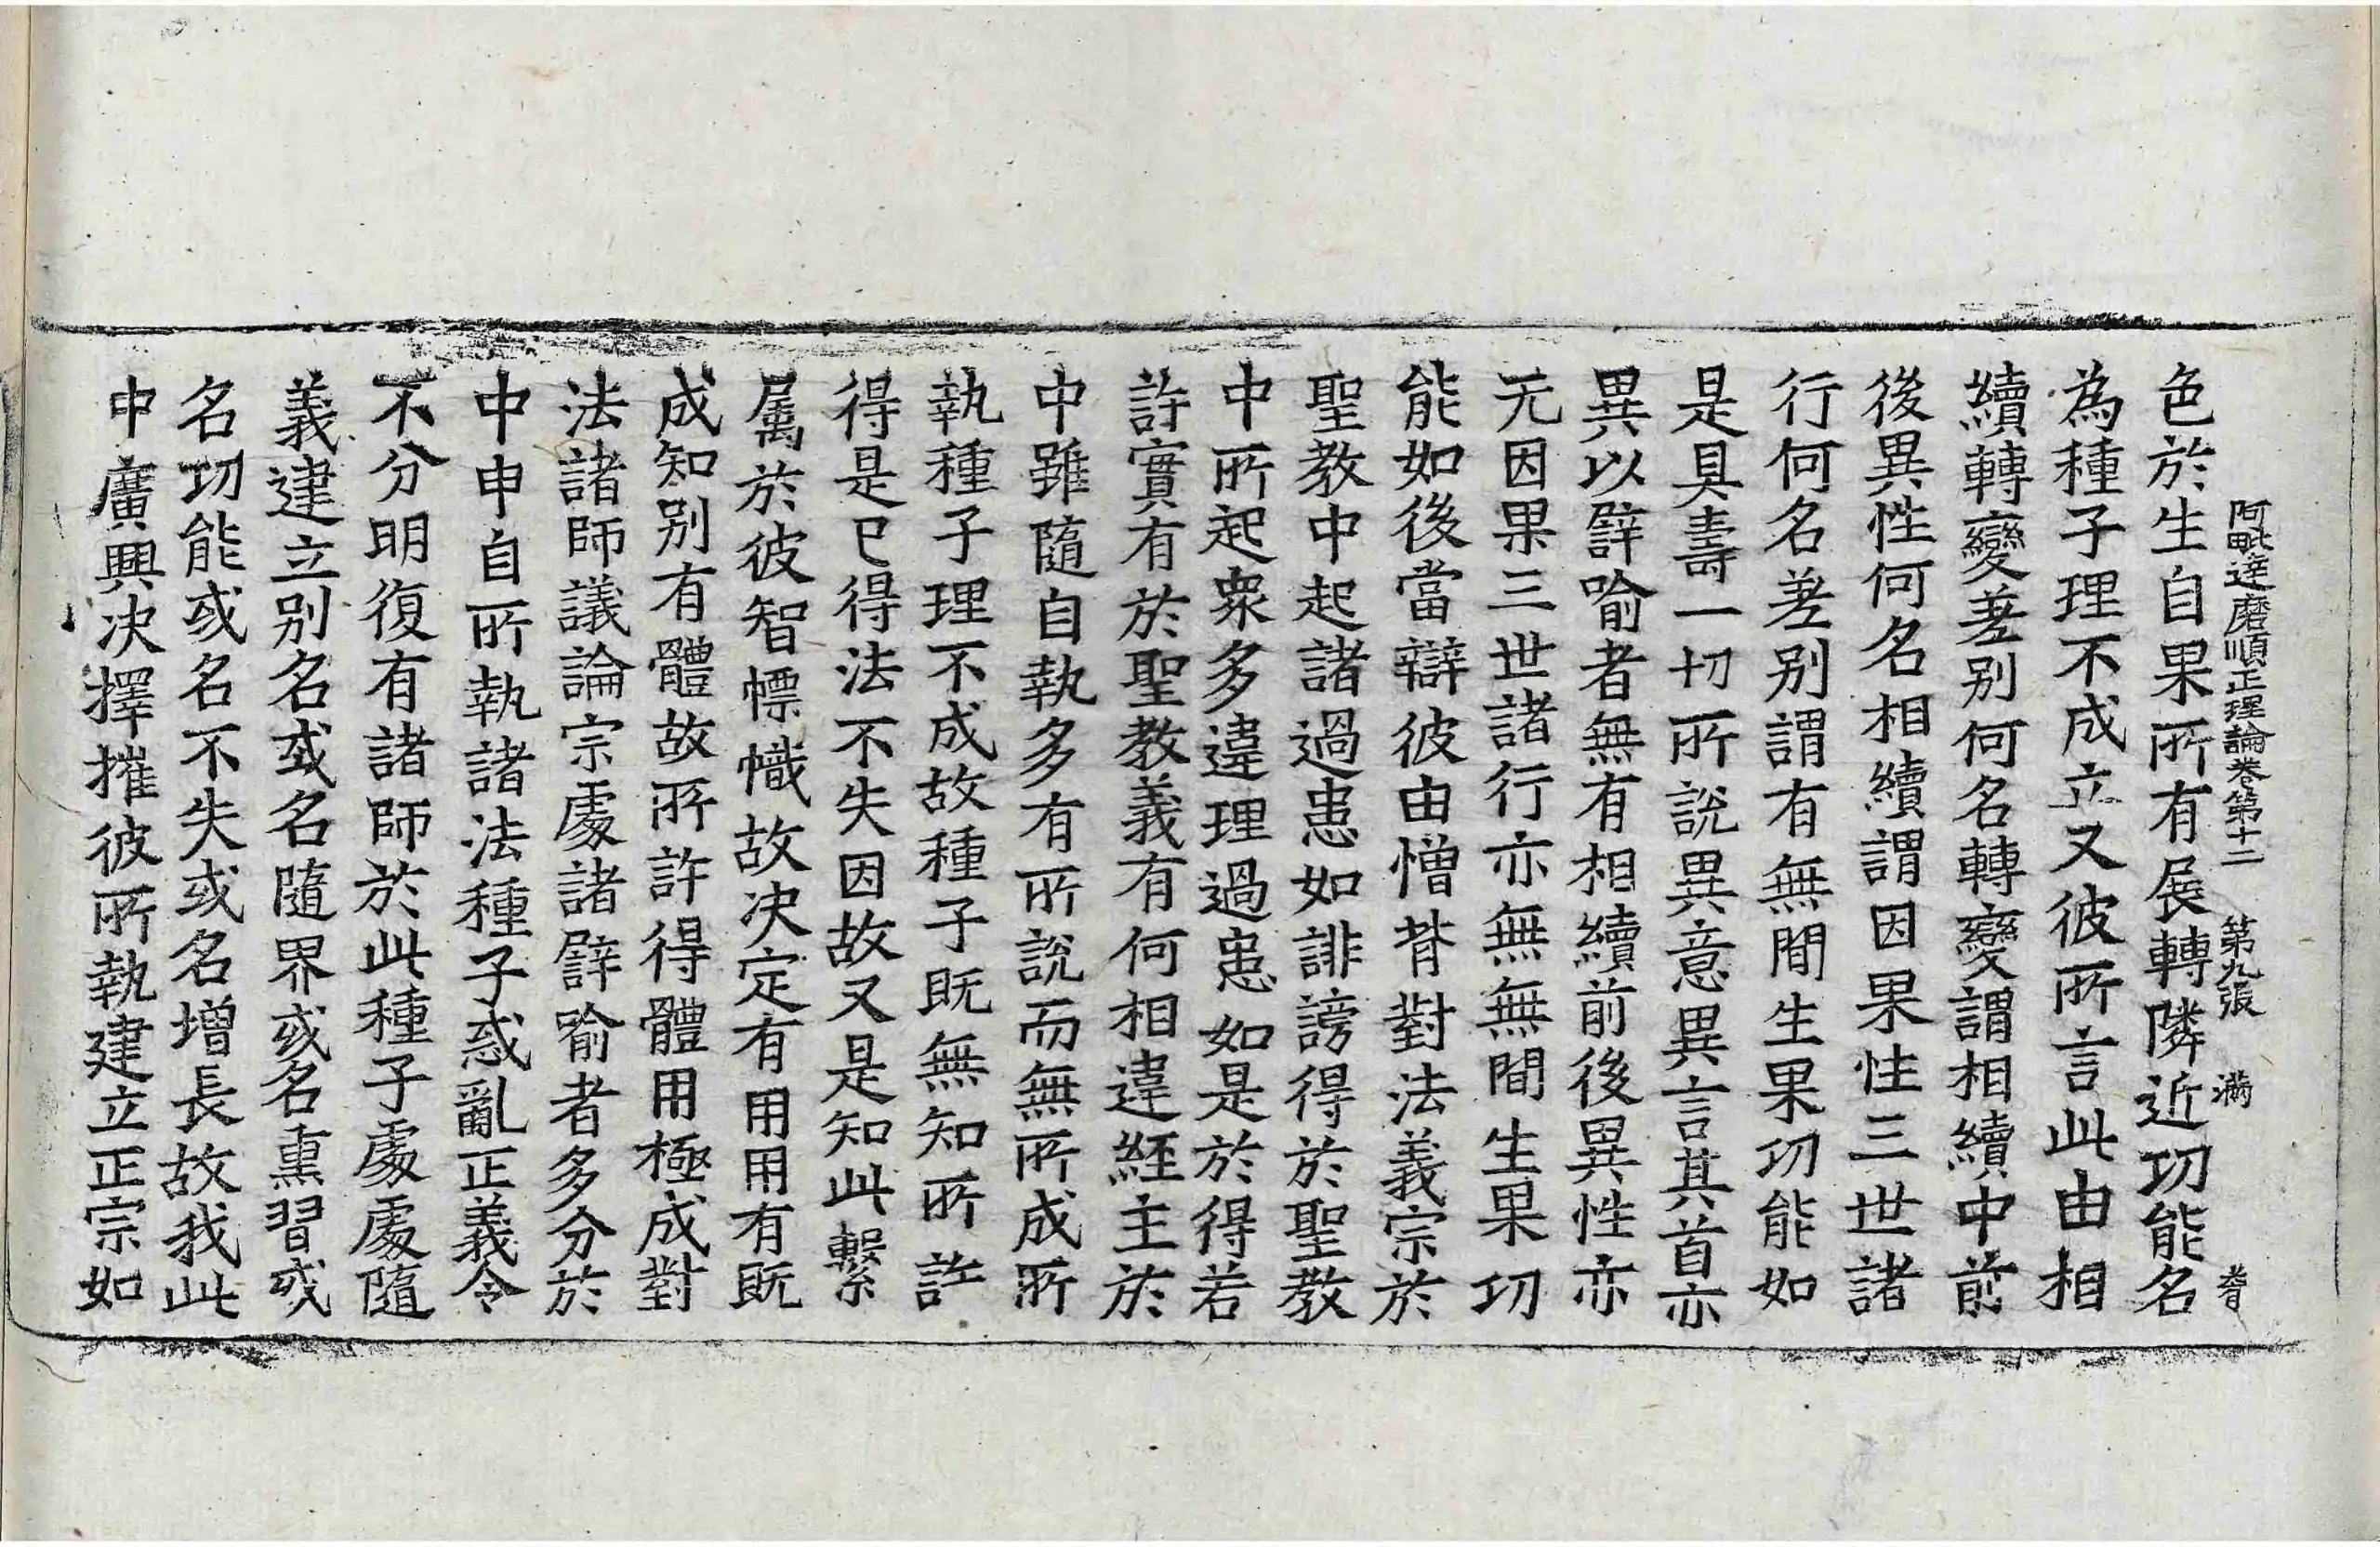 阿毗達磨順正理論卷第十二　第九張　滿
色於生自果所有展轉隣近功能名
為種子理不成立又彼所言此由相
續轉變差别何名轉變謂相續中前
後異性何名相續謂因果性三世諸
行何名差别謂有無間生果功能如
是具壽一切所說異意異言其首亦
異以譬喻者無有相續前後異性亦
无因果三世諸行亦無無間生果功
能如後當辯彼由憎背對法義宗於
聖教中起諸過患如誹謗得於聖教
中所起衆多違理過患如是於得若
許實有於聖教義有何相違經主於
中雖隨自執多有所說而無所成所
執種子理不成故種子既無知所許
得是已得法不失因故又是知此繫
屬於彼智幖幟故决定有用用有既
成知别有體故所許得體用極成對
法諸師議論宗處諸譬喻者多分於
中申自所執諸法種子惑亂正義令
不分明復有諸師於此種子處處隨
義建立别名或名隨界或名熏習或
名功能或名不失或名增長故我此
中廣興决擇摧彼所執建立正宗如